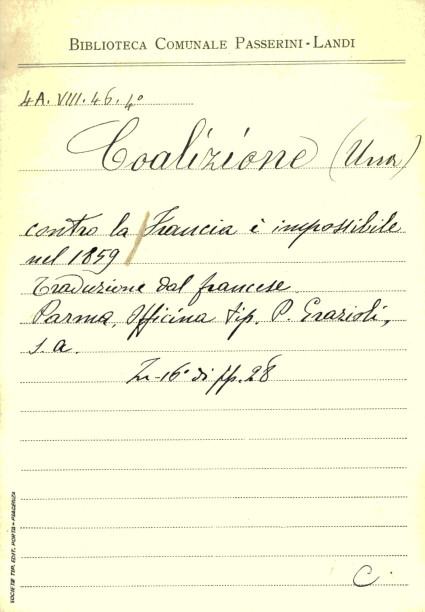 BIBLIOTECA COMUNALE PASSERINI-LANDI
4A. VIII. 46. 4°
Coalizione (Una)
contro la Francia è impossibile
nel 1859
Traduzione dal francese
Parma, Officina tip. P. Grazioli,
s.a.
In-16° di pp. 28
C.
SOCIETÀ TIP. EDIT. PORTA - PIACENZA